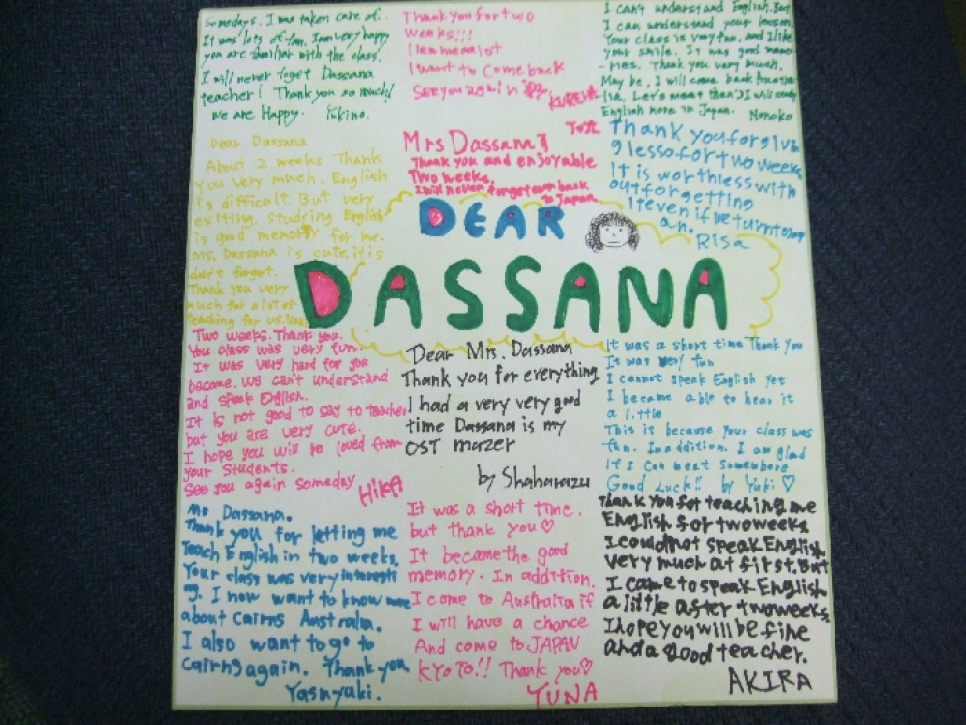 Somedays. I was taken care of.
It was lots of fan. I am very happy
you are familiar with the class.
I will never foget Dassana
teacher! Thank you so much!
we are Happy. Yukino.
Thank you for two
weeks!!!
I lean mean lot
I want to come back
See you again
KUREHA
I can't understand English. But
I can understand your lesson
Your class is very fun. and I like
your smile. It was good memo
-ries. Thank you very much.
May be, I will come back Austra
lia. Let's meet then:) I will study
English more in Japan. Nonoko
Dear Dassana
About 2 weeks Thank
you very much. English
is difficult. But very
exciting. studying English
is good memory for me.
Ms. Dassana is cute. it is
don't forget.
Thank you very
much for a lot of
teaching for us.
Mrs Dassana
Thank you and enjoyable
Two weeks.
I will never forget over back
to Japan.
Thank you for givin
g lesso for two weeks
It is worthless with
out forgetting
it even if return to Jap
an. Risa
DEAR
DASSANA
Two weeks. Thank you.
You class was very fun.
It was very hard for you
become. We can't understand
and speak English.
It is not good to say to teacher
but you are very cute.
I hope you will be loved from
your students.
See you again someday
Hika
Dear Mrs. Dassana
Thank you for everything
I had a very very good
time Dassana is my
OST mazer
by Shaharazu
It was a short time Thank you
It was very fun
I cannot speak English yet
I became able to hear it
a little
This is because your class was
fan. In addition. I am glad
if I can meat somewhere
Good Luck!! by Yuki ♡
Ms Dassana.
Thank you for letting me
Teach English in two weeks.
Your class was very interesti
ng. I now want to know more
about cairns Australia.
I also want to go to
cairns again. Thank you
Yasuyuki.
It was a short time.
but thank you♡
It became the good
memory. In addition.
I come to Australia if
I will have a chance
And come to JAPAN
KYOTO!! Thank you♡
YUNA
Thank you for teaching me
English for two weeks
I could not speak English
very much at first. But
I came to speak English
a little after two weeks.
I hope you will be fine
and a good teacher.
AKIRA